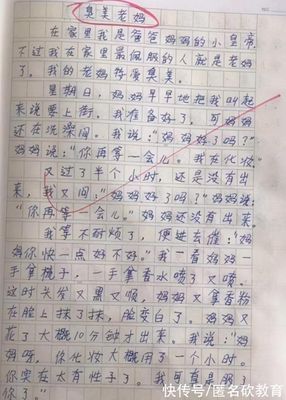 臭美老妈
在家里我是爸爸妈妈的小皇帝,
不过我在家里最佩服的人就是老妈
了。我的老妈特爱臭美。
星期日,妈妈早早地把我叫起
来说要上街。我准备好了,可妈妈
还在洗澡间。我说:“妈妈好了吗?”
妈妈说:“你再等一会儿。我在化妆”
又过了半个小时,还是没有出
来,我又问:“妈妈好了吗?”妈妈说:
“你再等一会儿。”妈妈还没有出来。
我等不耐烦了,便进去催:“妈
妈你快一点好不好。”我一看妈妈一
手拿梳子,一手拿香水喷了又喷。
这时头发又黑又顺,妈妈又拿香粉
在脸上抹了抹,脸变白了。妈妈又
花了大概10分钟才出来。我说:“妈
妈呀,你化妆大概用了一个小时。
你实在太有性子了。我可真是服
你了。”
快传号/匿名砍教育